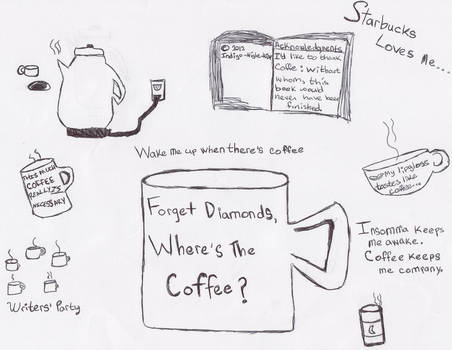 Starbucks
Loves Me...
© 2012
Acknowledgments
I'd like to thank
Coffe: without
whom, this
book would
never have been
finished
Wake me up when there's coffee
This much
COFFEE
REALLY IS
NECESSARY
My lipgloss
tastes like
coffee...
Forget Diamonds,
Where's The
Coffee?
Insomnia keeps
me awake.
Coffee keeps
me company.
Writers' Party